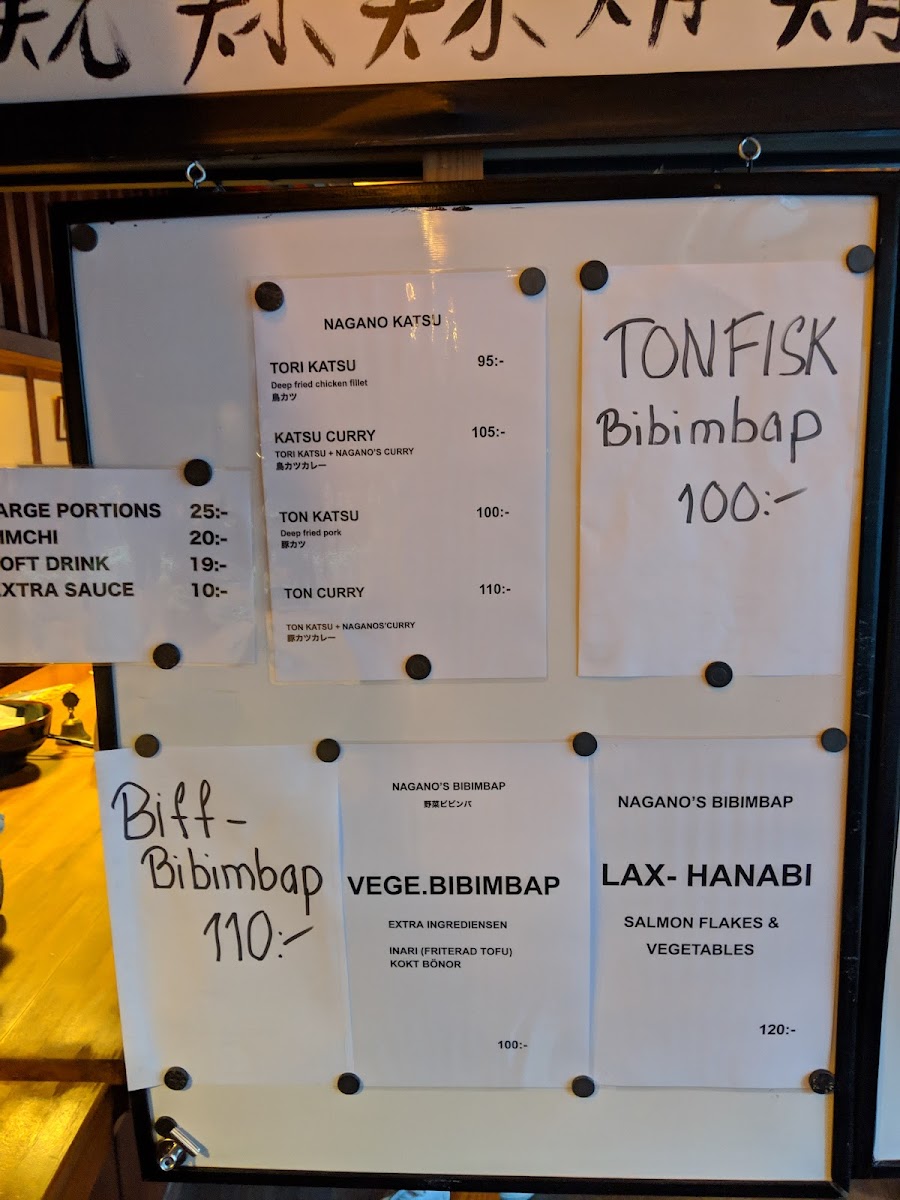 NAGANO KATSU
TORI KATSU 95:-
Deep fried chicken fillet
鳥カツ
KATSU CURRY 105:-
TORI KATSU + NAGANO'S CURRY
鳥カツカレー
TON KATSU 100:-
Deep fried pork
豚カツ
TON CURRY 110:-
TON KATSU + NAGANOS'CURRY
豚カツカレー
TONFISK
Bibimbap
100:-
ARGE PORTIONS 25:-
IMCHI 20:-
OFT DRINK 19:-
EXTRA SAUCE 10:-
Biff-
Bibimbap
110:-
NAGANO'S BIBIMBAP
野菜ビビンバ
VEGE.BIBIMBAP
EXTRA INGREDIENSEN
INARI (FRITERAD TOFU)
KOKT BÖNOR
100:-
NAGANO'S BIBIMBAP
LAX- HANABI
SALMON FLAKES &
VEGETABLES
120:-